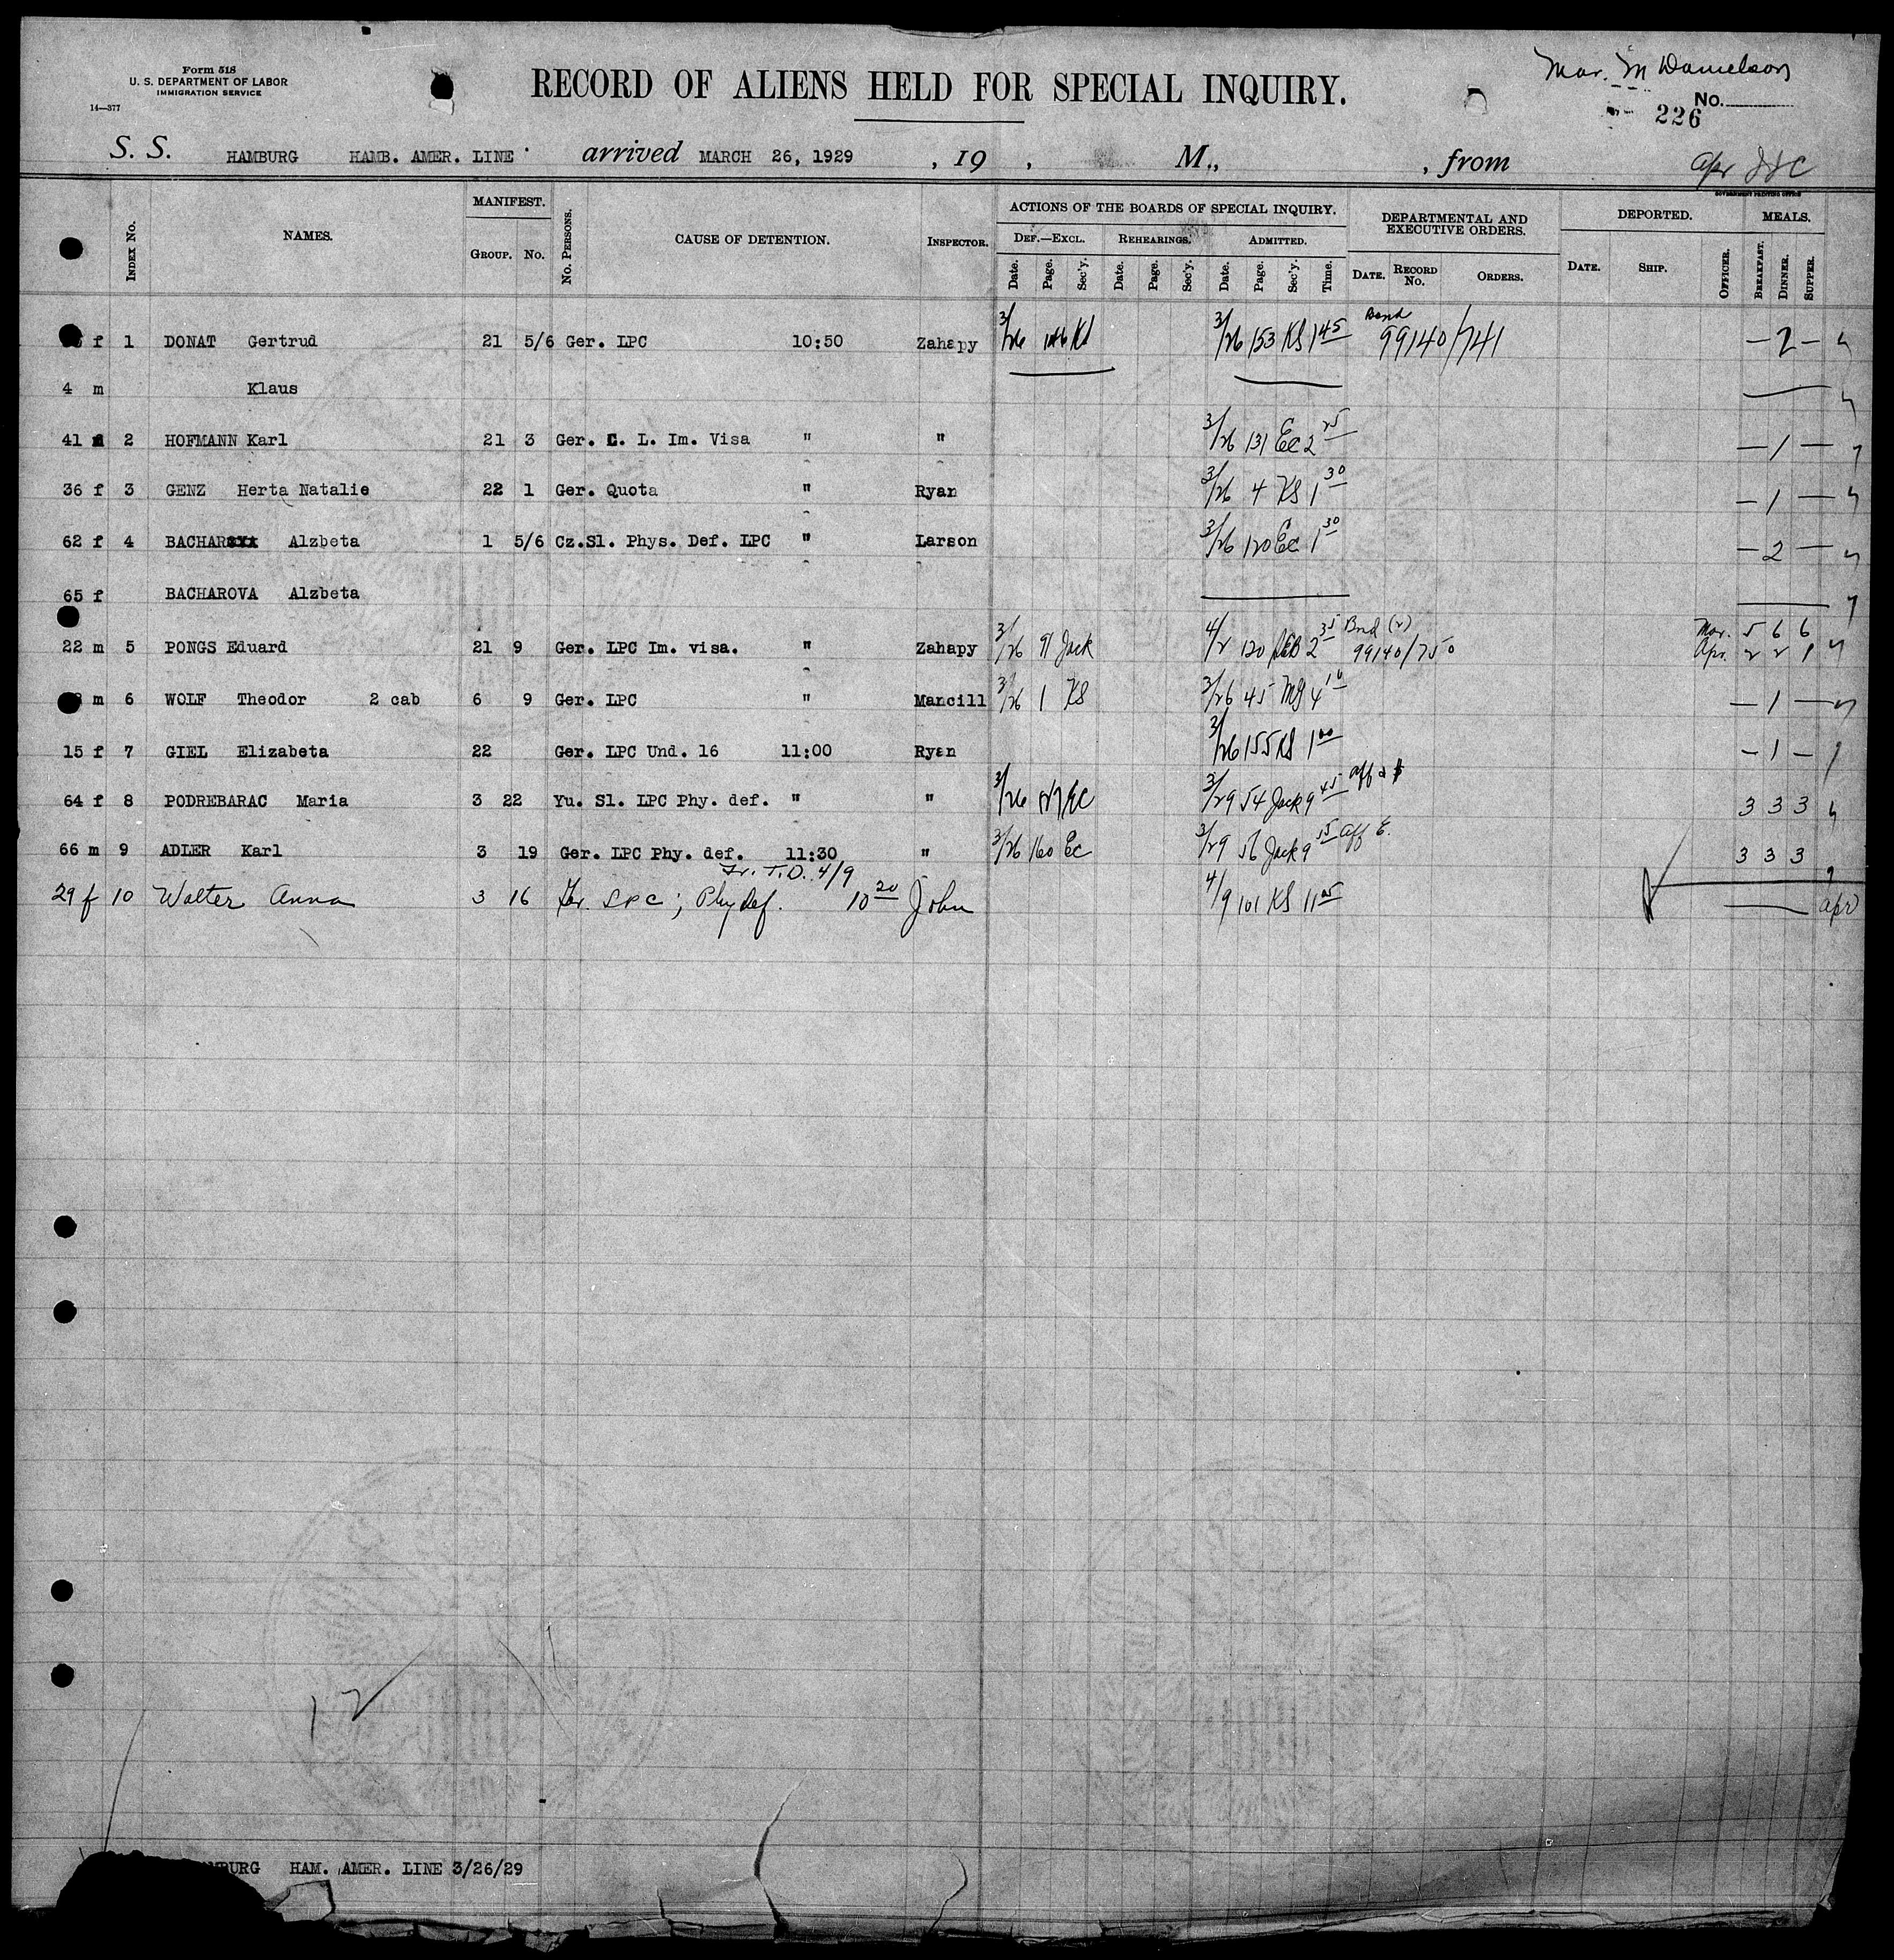 Form 518
U. S. DEPARTMENT OF LABOR
IMMIGRATION SERVICE
14—377
RECORD OF ALIENS HELD FOR SPECIAL INQUIRY.
Mar. M Danielson
No.
226
S. S. HAMBURG HAMB. AMER. LINE arrived MARCH 26, 1929 , 19 , M., , from
Apr
GOVERNMENT PRINTING OFFICE
INDEX No. NAMES. MANIFEST. GROUP. No. No. PERSONS. CAUSE OF DETENTION. INSPECTOR. ACTIONS OF THE BOARDS OF SPECIAL INQUIRY. DEPARTMENTAL AND EXECUTIVE ORDERS. DEPORTED. MEALS.
DEF.—EXCL. REHEARINGS. ADMITTED.
Date. Page. Sec'y. Date. Page. Sec'y. Date. Page. Sec'y. Time. DATE. RECORD No. ORDERS. DATE. SHIP. OFFICER. BREAKFAST. DINNER. SUPPER.
f 1 DONAT Gertrud 21 5/6 Ger. LPC 10:50 Zahapy 3/26 146 KS 3/26 153 KS 1 45 Bond 99140/741 — 2 —
4 m Klaus
41 2 HOFMANN Karl 21 3 Ger. C. L. Im. Visa " " 3/26 131 EC 2 25 — 1 —
36 f 3 GENZ Herta Natalie 22 1 Ger. Quota " Ryan 3/26 4 KS 1 30 — 1 —
62 f 4 BACHAR Alzbeta 1 5/6 Cz.Sl. Phys. Def. LPC " Larson 3/26 120 EC 1 30 — 2 —
65 f BACHAROVA Alzbeta
22 m 5 PONGS Eduard 21 9 Ger. LPC Im. visa. " Zahapy 3/26 91 Jack 4/2 120 2 35 Bnd (2) 99140/750 Mar. 5 6 6
Apr. 2 2 1
m 6 WOLF Theodor 2 cab 6 9 Ger. LPC " Mancill 3/26 1 KS 3/26 45 MG 4 10 — 1 —
15 f 7 GIEL Elizabeta 22 Ger. LPC Und. 16 11:00 Ryan 3/26 155 KS 1 00 — 1 —
64 f 8 PODREBARAC Maria 3 22 Yu. Sl. LPC Phy. def. " " 3/26 EC 3/29 54 Jack 9 45 aff & $ 3 3 3
66 m 9 ADLER Karl 3 19 Ger. LPC Phy. def. 11:30 " 3/26 160 EC 3/29 56 Jack 9 55 aff E. 3 3 3
Fr. T.D. 4/9
29 f 10 Walter Anna 3 16 Ger. LPC; Phy def. 10 20 John 4/9 101 KS 11 05 Apr
12
BURG HAM. AMER. LINE 3/26/29